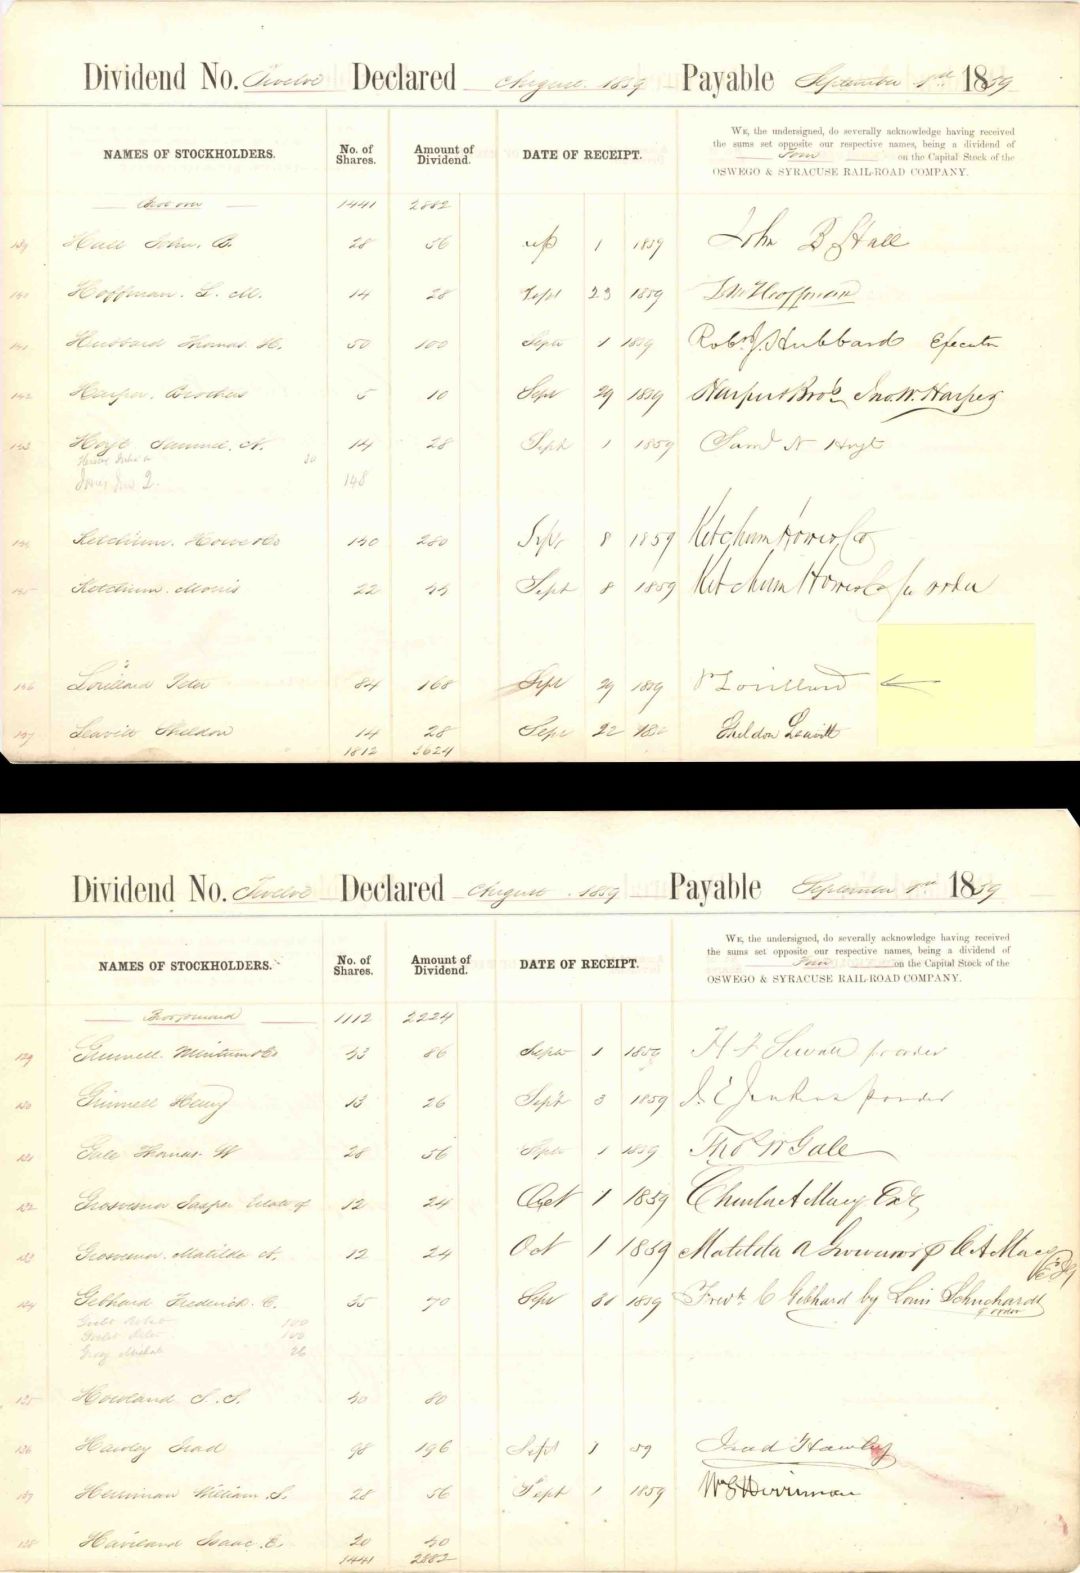 Dividend No. Twelve Declared August 1859 Payable September 1st 1859
NAMES OF STOCKHOLDERS. No. of Shares. Amount of Dividend. DATE OF RECEIPT.
WE, the undersigned, do severally acknowledge having received
the sums set opposite our respective names, being a dividend of
Four on the Capital Stock of the
OSWEGO & SYRACUSE RAIL-ROAD COMPANY.
1441 2882
139 Hall John. B. 28 56 1 1859 John B Hall
Hoffman. L. M. 14 28 Sept 23 1859 L M Hoffman
141 Hubbard Thomas H. 50 100 Sept 1 1859 Hubbard Executor
142 Harper. Brothers 5 10 Sept 29 1859 Harper & Bros Jno. W. Harper
143 Hoyt Samuel. N. 14 28 Sept 1 1859 Saml N Hoyt
30
148
Ketchum. Howe & Co 140 280 Sept 8 1859 Ketchum Howe & Co
145 Ketchum. Morris 22 44 Sept 8 1859 Ketchum Howe & Co pr order
146 Lorillard Peter 84 168 Sept 29 1859 P Lorillard
147 Leavitt Sheldon 14 28 Sept 22 Sheldon Leavitt
1812 3624
Dividend No. Twelve Declared August 1859 Payable September 1st 1859
NAMES OF STOCKHOLDERS. No. of Shares. Amount of Dividend. DATE OF RECEIPT.
WE, the undersigned, do severally acknowledge having received
the sums set opposite our respective names, being a dividend of
Four on the Capital Stock of the
OSWEGO & SYRACUSE RAIL-ROAD COMPANY.
Bro forward 1112 2224
129 Grinnell. Minturn & Co 43 86 Sept 1 1859 H F pr order
130 Grinnell Henry 13 26 Sept 3 1859 Jenkins pr order
131 Gale Thomas. W 28 56 Sept 1 1859 Thos W Gale
132 Grosvenor Jasper Estate of 12 24 Oct 1 1859 Charles A Macy Exr
133 Grosvenor. Matilda A. 12 24 Oct 1 1859 Matilda A Grosvenor C A Macy
134 Gebhard Frederick. C. 35 70 Sept 30 1859 Fredk C Gebhard by Louis Schuchardt
100
100
26
135 Howland S. S. 40 80
136 Hawley Irad 98 196 Sept 1 59 Irad Hawley
137 Herriman William. S. 28 56 Sept 1 1859 Wm S Herriman
138 Haviland Isaac. E. 20 40
1441 2882